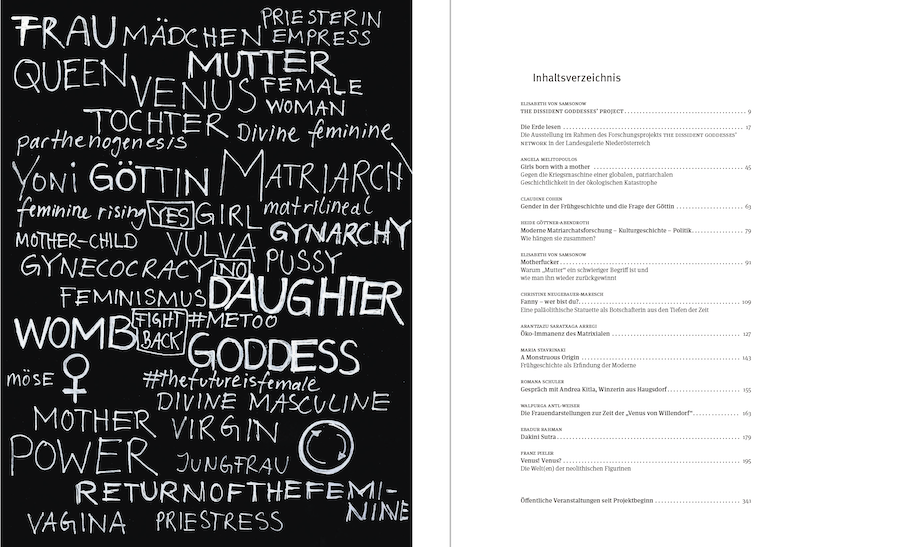 PRIESTERIN
FRAU MÄDCHEN EMPRESS
QUEEN MUTTER
VENUS FEMALE
WOMAN
TOCHTER Divine feminine
parthenogenesis
Yoni GÖTTIN MATRIARCH
feminine rising YES GIRL matrilineal
MOTHER-CHILD VULVA GYNARCHY
GYNECOCRACY NO PUSSY
FEMINISMUS DAUGHTER
WOMB FIGHT BACK #METOO
GODDESS
möse ♀ #thefutureisfemale
DIVINE MASCULINE
MOTHER VIRGIN
POWER JUNGFRAU
RETURNOFTHEFEMI-
NINE
VAGINA PRIESTRESS
Inhaltsverzeichnis
ELISABETH VON SAMSONOW
THE DISSIDENT GODDESSES' PROJECT 9
Die Erde lesen 17
Die Ausstellung im Rahmen des Forschungsprojekts THE DISSIDENT GODDESSES'
NETWORK in der Landesgalerie Niederösterreich
ANGELA MELITOPOULOS
Girls born with a mother 45
Gegen die Kriegsmaschine einer globalen, patriarchalen
Geschichtlichkeit in der ökologischen Katastrophe
CLAUDINE COHEN
Gender in der Frühgeschichte und die Frage der Göttin 63
HEIDE GÖTTNER-ABENDROTH
Moderne Matriarchatsforschung – Kulturgeschichte – Politik 79
Wie hängen sie zusammen?
ELISABETH VON SAMSONOW
Motherfucker 91
Warum „Mutter“ ein schwieriger Begriff ist und
wie man ihn wieder zurückgewinnt
CHRISTINE NEUGEBAUER-MARESCH
Fanny – wer bist du? 109
Eine paläolithische Statuette als Botschafterin aus den Tiefen der Zeit
ARANTZAZU SARATXAGA ARREGI
Öko-Immanenz des Matrixialen 127
MARIA STAVRINAKI
A Monstruous Origin 143
Frühgeschichte als Erfindung der Moderne
ROMANA SCHULER
Gespräch mit Andrea Kitla, Winzerin aus Haugsdorf 155
WALPURGA ANTL-WEISER
Die Frauendarstellungen zur Zeit der „Venus von Willendorf“ 163
EBADUR RAHMAN
Dakini Sutra 179
FRANZ PIELER
Venus? Venus? 195
Die Welt(en) der neolithischen Figurinen
Öffentliche Veranstaltungen seit Projektbeginn 341